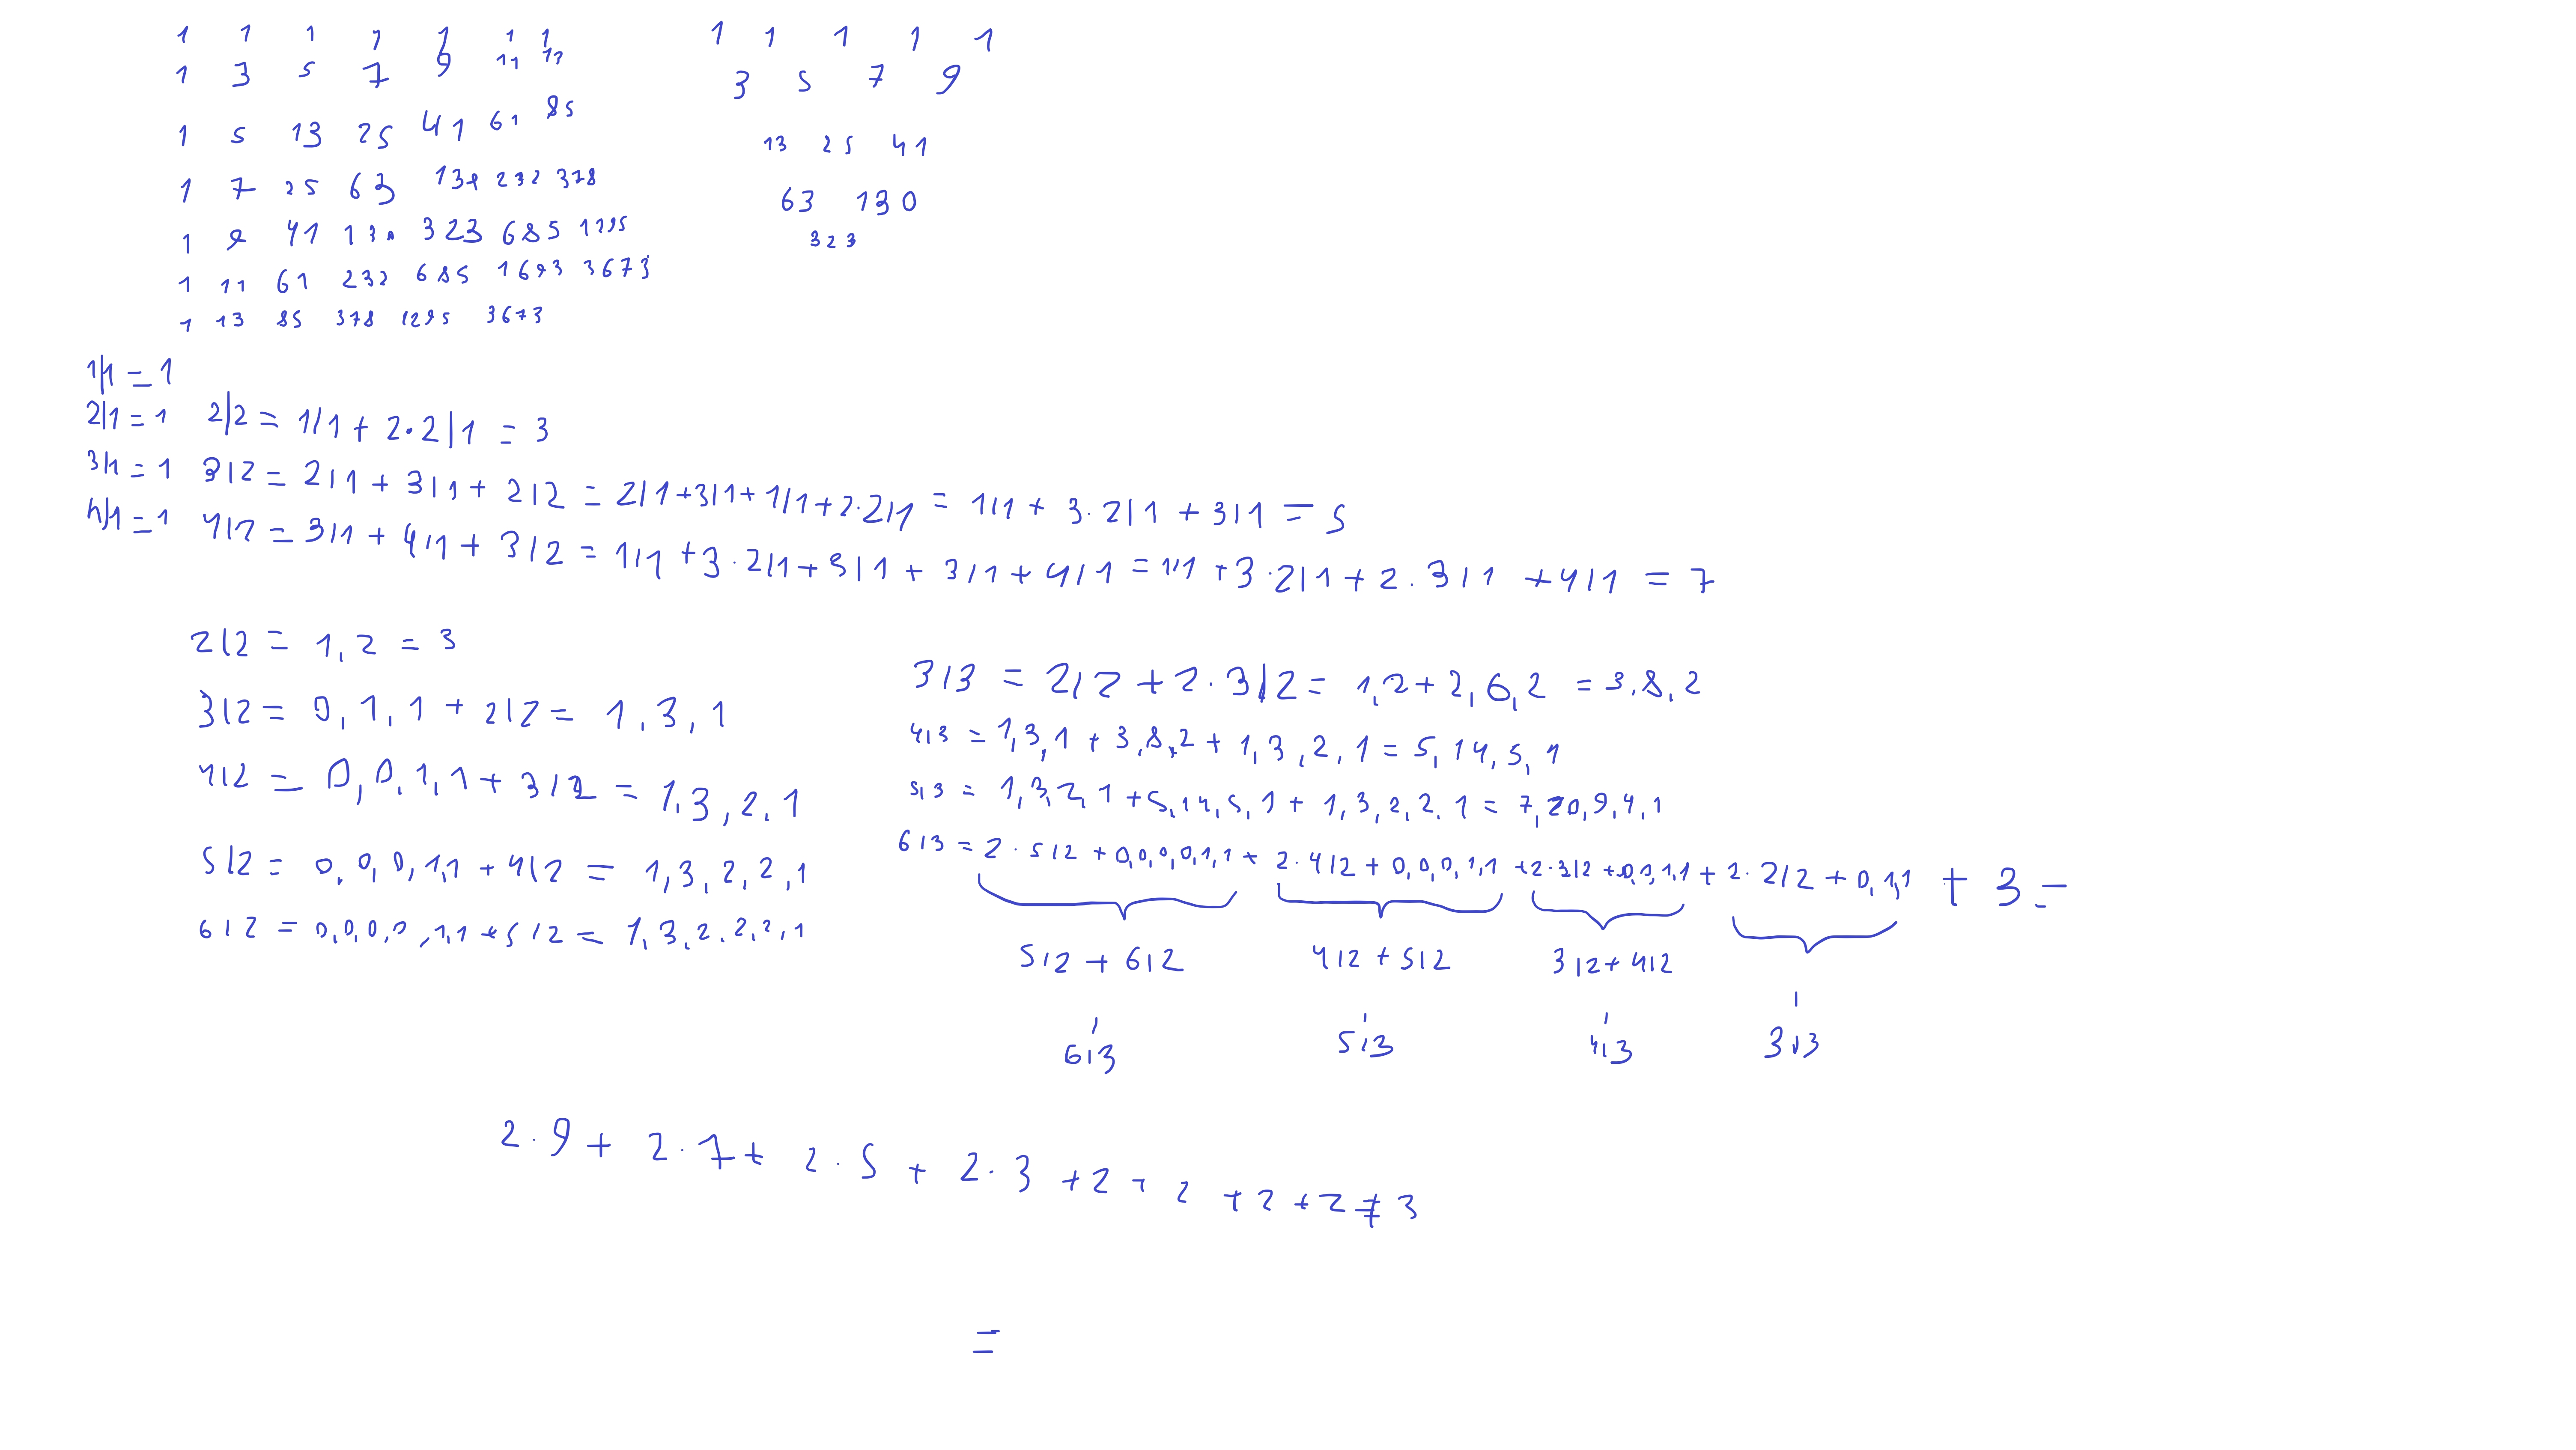 1 1 1 1 1 1 1
1 3 5 7 9 11 13
1 5 13 25 41 61 85
1 7 25 63 138 232 378
1 9 41 130 323 685 1295
1 11 61 232 685 1693 3673
1 13 85 378 1295 3673
1 1 1 1 1
3 5 7 9
13 25 41
63 130
323
1|1 = 1
2|1 = 1 2|2 = 1|1 + 2·2|1 = 3
3|1 = 1 3|2 = 2|1 + 3|1 + 2|2 = 2|1+3|1+1|1+2·2|1 = 1|1 + 3·2|1 + 3|1 = 5
4|1 = 1 4|2 = 3|1 + 4|1 + 3|2 = 1|1 + 3·2|1 + 3|1 + 3|1 + 4|1 = 1|1 + 3·2|1 + 2·3|1 + 4|1 = 7
2|2 = 1,2 = 3
3|2 = 0,1,1 + 2|2 = 1,3,1
4|2 = 0,0,1,1 + 3|2 = 1,3,2,1
5|2 = 0,0,0,1,1 + 4|2 = 1,3,2,2,1
6|2 = 0,0,0,0,1,1 + 5|2 = 1,3,2,2,2,1
3|3 = 2|2 + 2·3|2 = 1,2 + 2,6,2 = 3,8,2
4|3 = 1,3,1 + 3,8,2 + 1,3,2,1 = 5,14,5,1
5|3 = 1,3,2,1 + 5,14,5,1 + 1,3,2,2,1 = 7,20,9,4,1
6|3 = 2·5|2 + 0,0,0,0,1,1 + 2·4|2 + 0,0,0,1,1 + 2·3|2 + 0,0,1,1 + 2·2|2 + 0,1,1 + 3 =
5|2 + 6|2 4|2 + 5|2 3|2 + 4|2
6|3 5|3 4|3 3|3
2·9 + 2·7 + 2·5 + 2·3 + 2 + 2 + 2 + 2 + 3
=